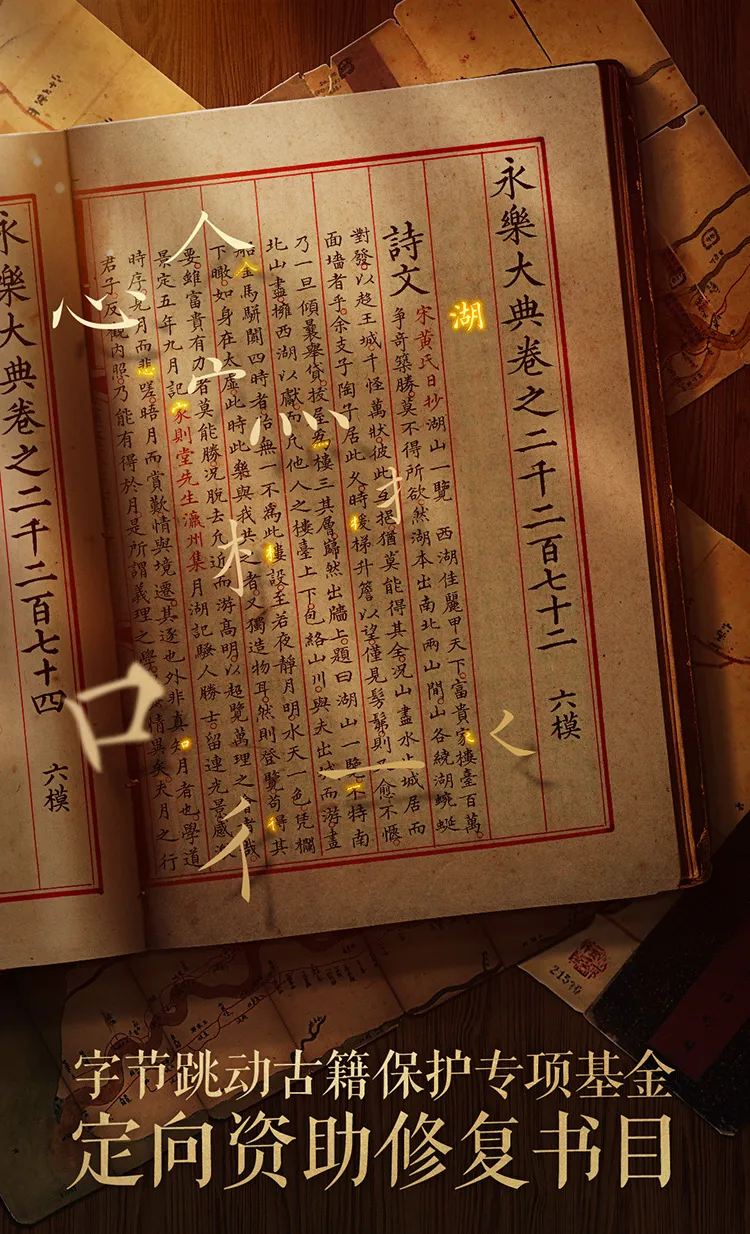 永樂大典卷之二千二百七十二 六模
湖
詩文
宋黃氏日抄湖山一覽 西湖佳麗甲天下富貴家樓臺百萬
爭奇築勝莫不得所欲然湖本出南北兩山間山各繞湖蜿蜒
對發以趍王城千怪萬狀彼此互挹猶莫能得其全况山盡水城居而
面墻者乎余支子陶子居此久時援梯升簷以望僅見髣髴則又愈不愜
乃一旦傾囊舉貸拔屋爲樓三其層巋然出墻上題曰湖山一覽不特南
北山盡擁西湖以獻而凡他人之樓臺上下包絡山川與夫出城而游畫
船金馬駢闐四時者洽無一不爲此樓設至若夜靜月明水天一色凭欄
下瞰如身在太虛此時此樂與我共之者又獨造物耳然則登覽苟得其
要雖富貴有力者莫能勝况脫去凡近而游髙明以超覽萬理之會者哉
景定五年九月記家則堂先生瀛州集月湖記騷人勝士留連光景感
時序光月而悲嗟晤月而賞歎情與境遷其逐也外非真知月者也學道
君子反觀內照乃能有得於月是所謂義理之學情異矣夫月之行
永樂大典卷之二千二百七十四 六模
人
心
宀
灬
扌
木
口
一
く
彳
21530
字节跳动古籍保护专项基金
定向资助修复书目